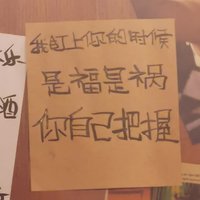 我盯上你的时候
是福是祸
你自己把握
乐
酒